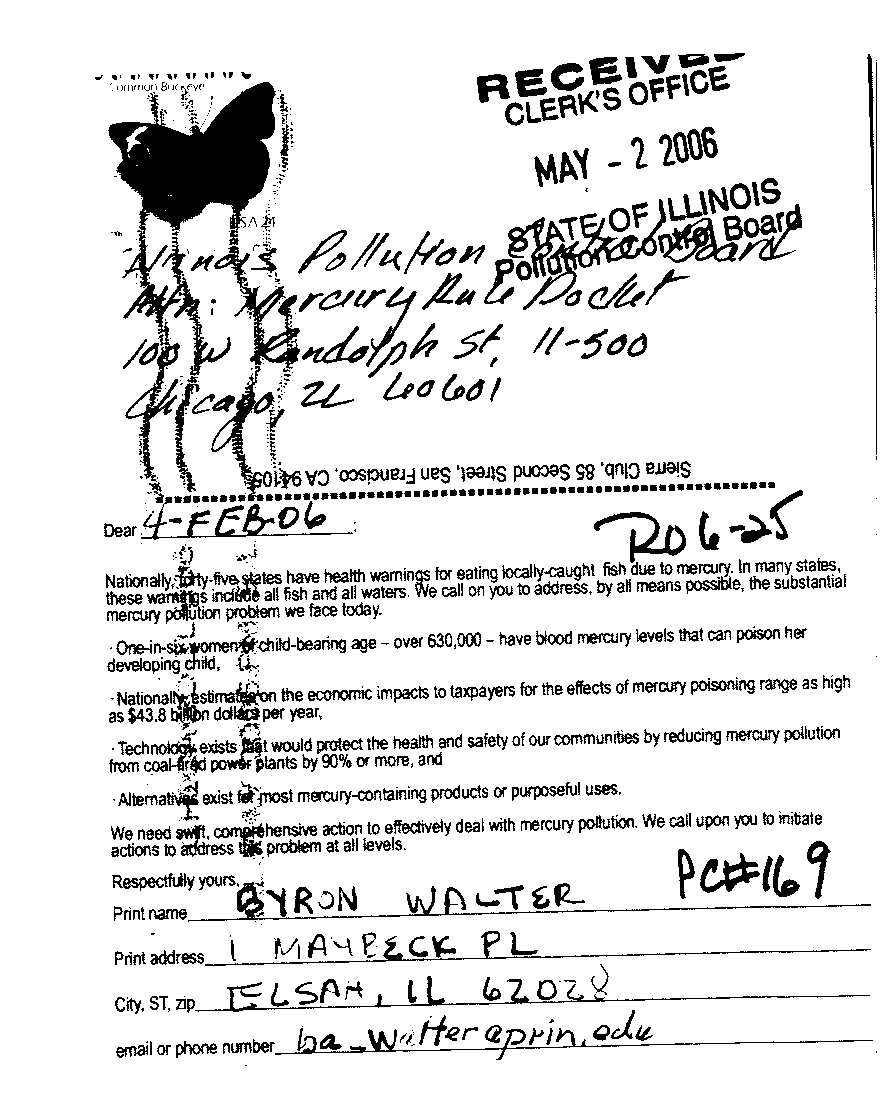 Common Buckeye
RECEIVED
CLERK'S OFFICE
MAY - 2 2006
STATE OF ILLINOIS
Pollution Control Board
USA 24
Illinois Pollution Control Board
Attn: Mercury Rule Docket
100 W Randolph St, 11-500
Chicago, IL 60601
Sierra Club, 85 Second Street, San Francisco, CA 94105
Dear 4-FEB-06 :
R06-25
Nationally, forty-five states have health warnings for eating locally-caught fish due to mercury. In many states,
these warnings include all fish and all waters. We call on you to address, by all means possible, the substantial
mercury pollution problem we face today.
· One-in-six women of child-bearing age – over 630,000 – have blood mercury levels that can poison her
developing child,
· Nationally, estimates on the economic impacts to taxpayers for the effects of mercury poisoning range as high
as $43.8 billion dollars per year,
· Technology exists that would protect the health and safety of our communities by reducing mercury pollution
from coal-fired power plants by 90% or more, and
· Alternatives exist for most mercury-containing products or purposeful uses.
We need swift, comprehensive action to effectively deal with mercury pollution. We call upon you to initiate
actions to address this problem at all levels.
Respectfully yours,
PC#169
Print name BYRON WALTER
Print address 1 MAYBECK PL
City, ST, zip ELSAH, IL 62028
email or phone number ba_walter@prin.edu